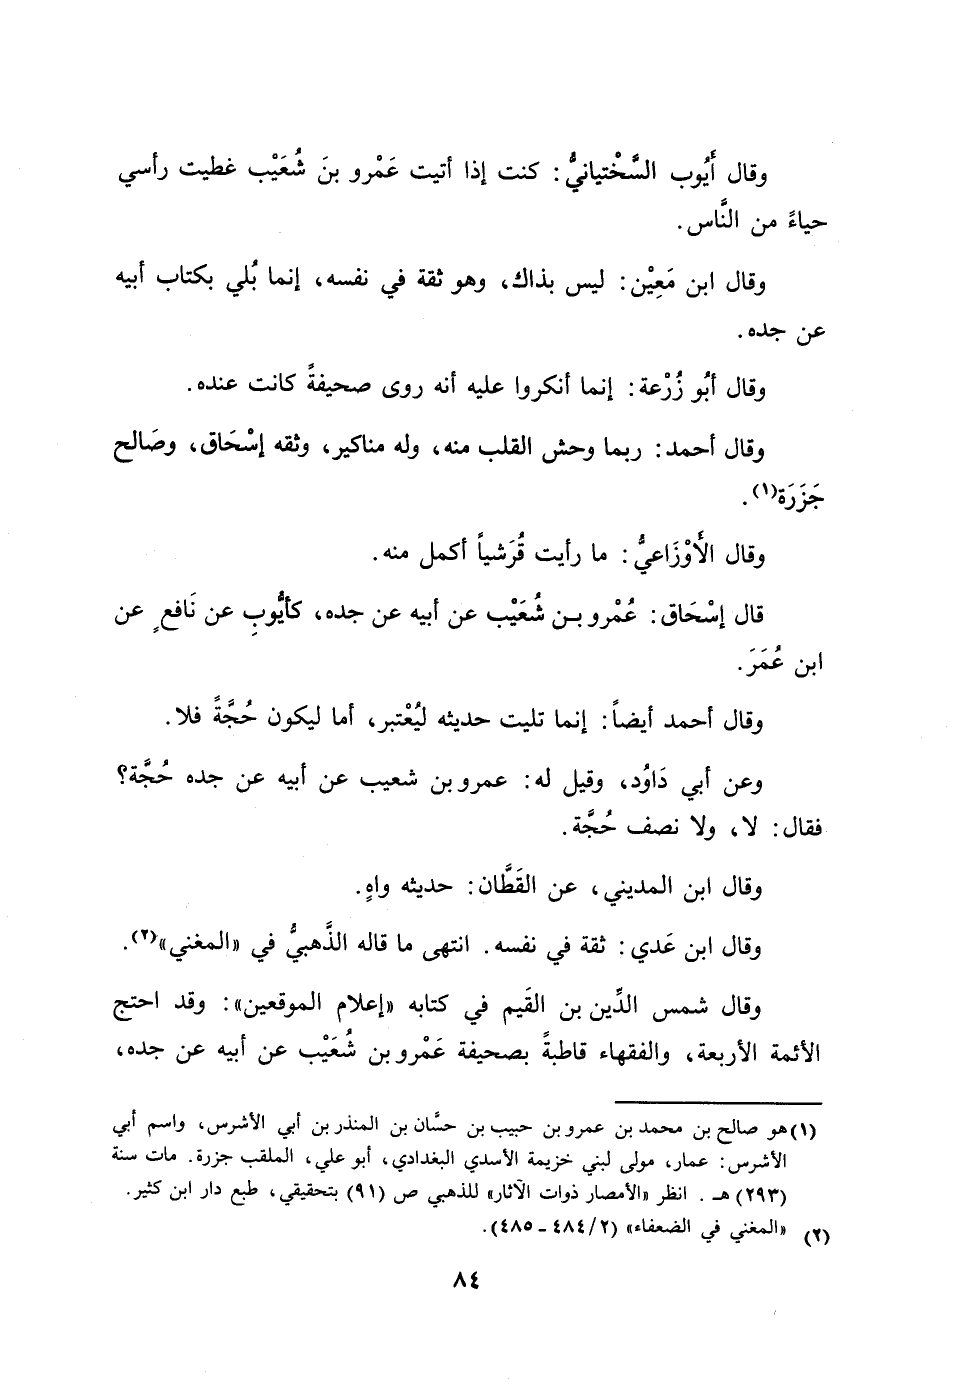 وقال أَيُوب السَّخْتيانيُّ: كنت إذا أتيت عَمْرو بنَ شُعَيْب غطيت رأسي
حياءً من النَّاس.
وقال ابن مَعِيْن: ليس بذاك، وهو ثقة في نفسه، إنما بُلي بكتاب أبيه
عن جده.
وقال أبُو زُرْعة: إنما أنكروا عليه أنه روى صحيفةً كانت عنده.
وقال أحمد: ربما وحش القلب منه، وله مناكير، وثقه إسْحَاق، وصَالح
جَزَرَة(١).
وقال الأَوْزَاعيُّ: ما رأيت قُرَشياً أكمل منه.
قال إسْحَاق: عُمْرو بـن شُعَيْب عن أبيه عن جده، كأيُّوبِ عن نَافعٍ عن
ابن عُمَرَ.
وقال أحمد أيضاً: إنما تليت حديثه ليُعْتبر، أما ليكون حُجَّةً فلا.
وعن أبي دَاوُد، وقيل له: عمرو بن شعيب عن أبيه عن جده حُجَّة؟
فقال: لا، ولا نصف حُجَّة.
وقال ابن المديني، عن القَطَّان: حديثه واهٍ.
وقال ابن عَدي: ثقة في نفسه. انتهى ما قاله الذَّهبيُّ في «المغني»(٢).
وقال شمس الدِّين بن القَيم في كتابه «إعلام الموقعين»: وقد احتج
الأئمة الأربعة، والفقهاء قاطبةً بصحيفة عَمْرو بن شُعَيْب عن أبيه عن جده،
(١) هو صالح بن محمد بن عمرو بن حبيب بن حسَّان بن المنذر بن أبي الأشرس، واسم أبي
الأشرس: عمار، مولى لبني خزيمة الأسدي البغدادي، أبو علي، الملقب جزرة. مات سنة
(٢٩٣) هـ. انظر «الأمصار ذوات الآثار» للذهبي ص (٩١) بتحقيقي، طبع دار ابن كثير.
(٢) «المغني في الضعفاء» (٢/ ٤٨٤ ـ ٤٨٥).
٨٤